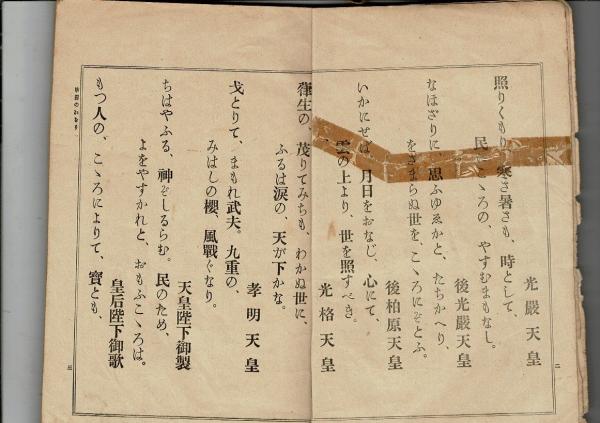 光嚴天皇
照りくもり、寒さ暑さも、時として、
民にこゝろの、やすむまもなし。
後光嚴天皇
なほざりに、思ふゆゑかと、たちかへり、
をさまらぬ世を、こゝろにぞとふ。
後柏原天皇
いかにせば、月日をおなじ、心にて、
雲の上より、世を照すべき。
光格天皇
葎生の、茂りてみちも、わかぬ世に、
ふるは涙の、天が下かな。
孝明天皇
戈とりて、まもれ武夫。九重の、
みはしの櫻、風戰ぐなり。
天皇陛下御製
ちはやふる、神ぞしるらむ。民のため、
よをやすかれと、おもふこゝろは。
皇后陛下御歌
もつ人の、こゝろによりて、寶とも、
二
三